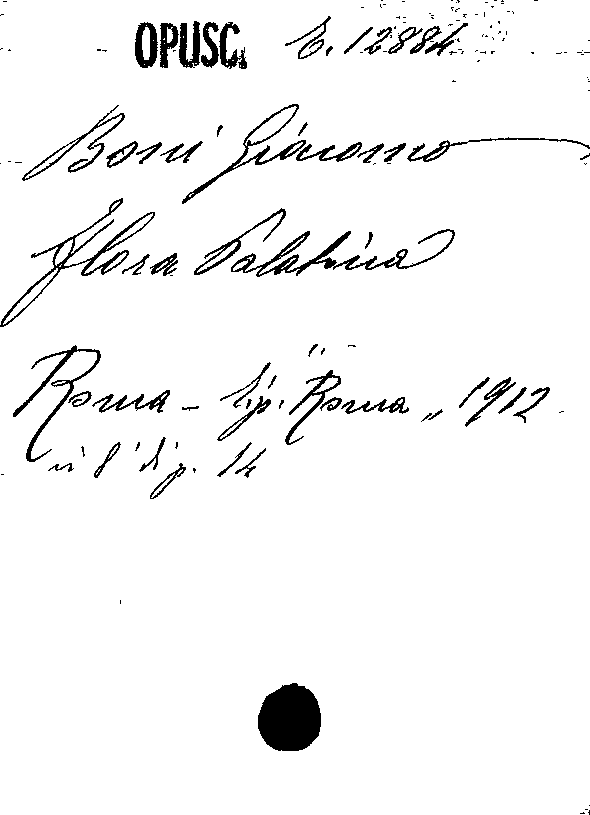 OPUSC. E. 12884
Boni Giacomo
Flora Palatina
Roma - Tip. "Roma" 1912
in 8° di p. 14